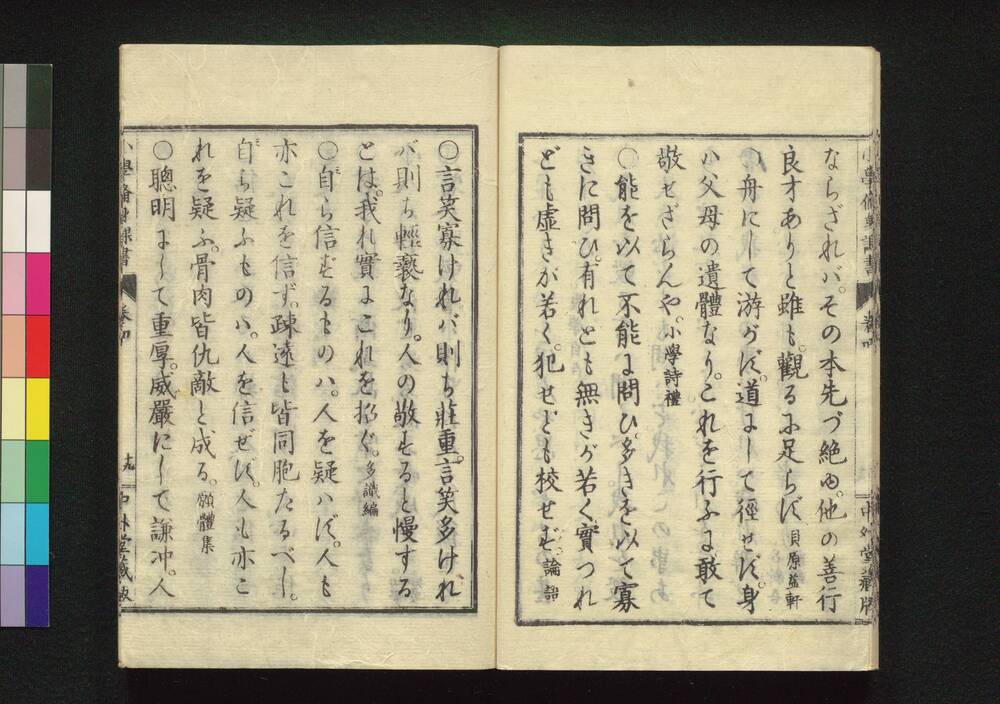 ならざれバ。その本先づ絶ゆ。他の善行
良才ありと雖も。觀るに足らず 貝原益軒
〇舟にして游がず。道にして徑せず。身
ハ父母の遺體なり。これを行ふに敢て
敬せざらんや。小學詩禮
〇能を以て不能に問ひ。多きを以て寡
きに問ひ。有れとも無きが若く實つれ
ども虚きが若く。犯せども校せず。論語
〇言笑寡けれバ則ち莊重。言笑多けれ
バ則ち輕褻なり。人の敬すると慢する
とは。我れ實にこれを招ぐ。多識編
〇自ら信ずるものハ。人を疑ハず。人も
亦これを信ず。疎遠も皆同胞たるべし。
自ら疑ふものハ。人を信ぜず。人も亦こ
れを疑ふ。骨肉皆仇敵と成る。願體集
〇聰明にして重厚。威嚴にして謙冲。人
小學脩身課書 卷四 十九 中外堂藏版